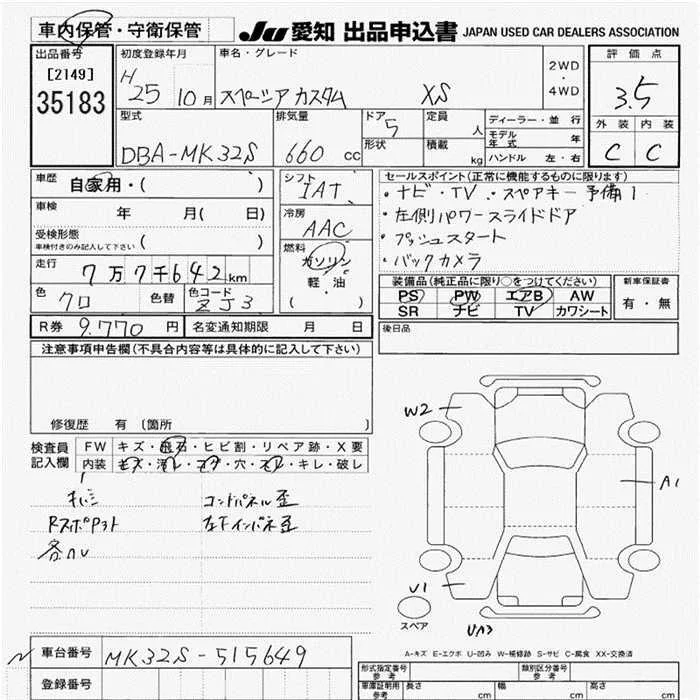 車内保管・守衛保管
JU 愛知 出品申込書 JAPAN USED CAR DEALERS ASSOCIATION
出品番号
[2149]
35183
初度登録年月
H 25 10 月
車名・グレード
スペーシア カスタム XS
2WD
・
4WD
評価点
3.5
外装 内装
C C
型式
DBA-MK32S
排気量
660 cc
ドア 5
形状
定員 人
積載 kg
ディーラー・並行
モデル年式 年
ハンドル 左・右
車歴
自家用・( )
車検 年 月( 日)
受検形態
車検付きのみ記入して下さい ( )
走行
7万7千642km
色 クロ 色替
色コード ZJ3
シフト
IAT
冷房
AAC
燃料
ガソリン
軽・油
( )
セールスポイント(正常に機能するものに限ります)
・ナビ・TV ・スペアキー 予備1
・左側パワースライドドア
・プッシュスタート
・バックカメラ
装備品(純正品に限り○をつけてください)
PS PW エアB AW
SR ナビ TV カワシート
新車保証書
有・無
R券 9.770 円
名変通知期限 月 日
後日品
注意事項申告欄(不具合内容等は具体的に記入して下さい)
修復歴 有 (箇所 )
検査員
記入欄
FW キズ・飛石・ヒビ割・リペア跡・X要
内装 キズ・汚レ・コゲ・穴・スレ・キレ・破レ
コンドパネル歪
左下インパネ歪
W2
A1
U1
UA3
スペア
A-キズ E-エクボ U-凹み W-補修跡 S-サビ C-腐食 XX-交換済
車台番号 MK32S-515649
登録番号
形式指定番号
参考
類別区分番号
参考
車庫証明用
参考
長さ cm
幅 cm
高さ cm